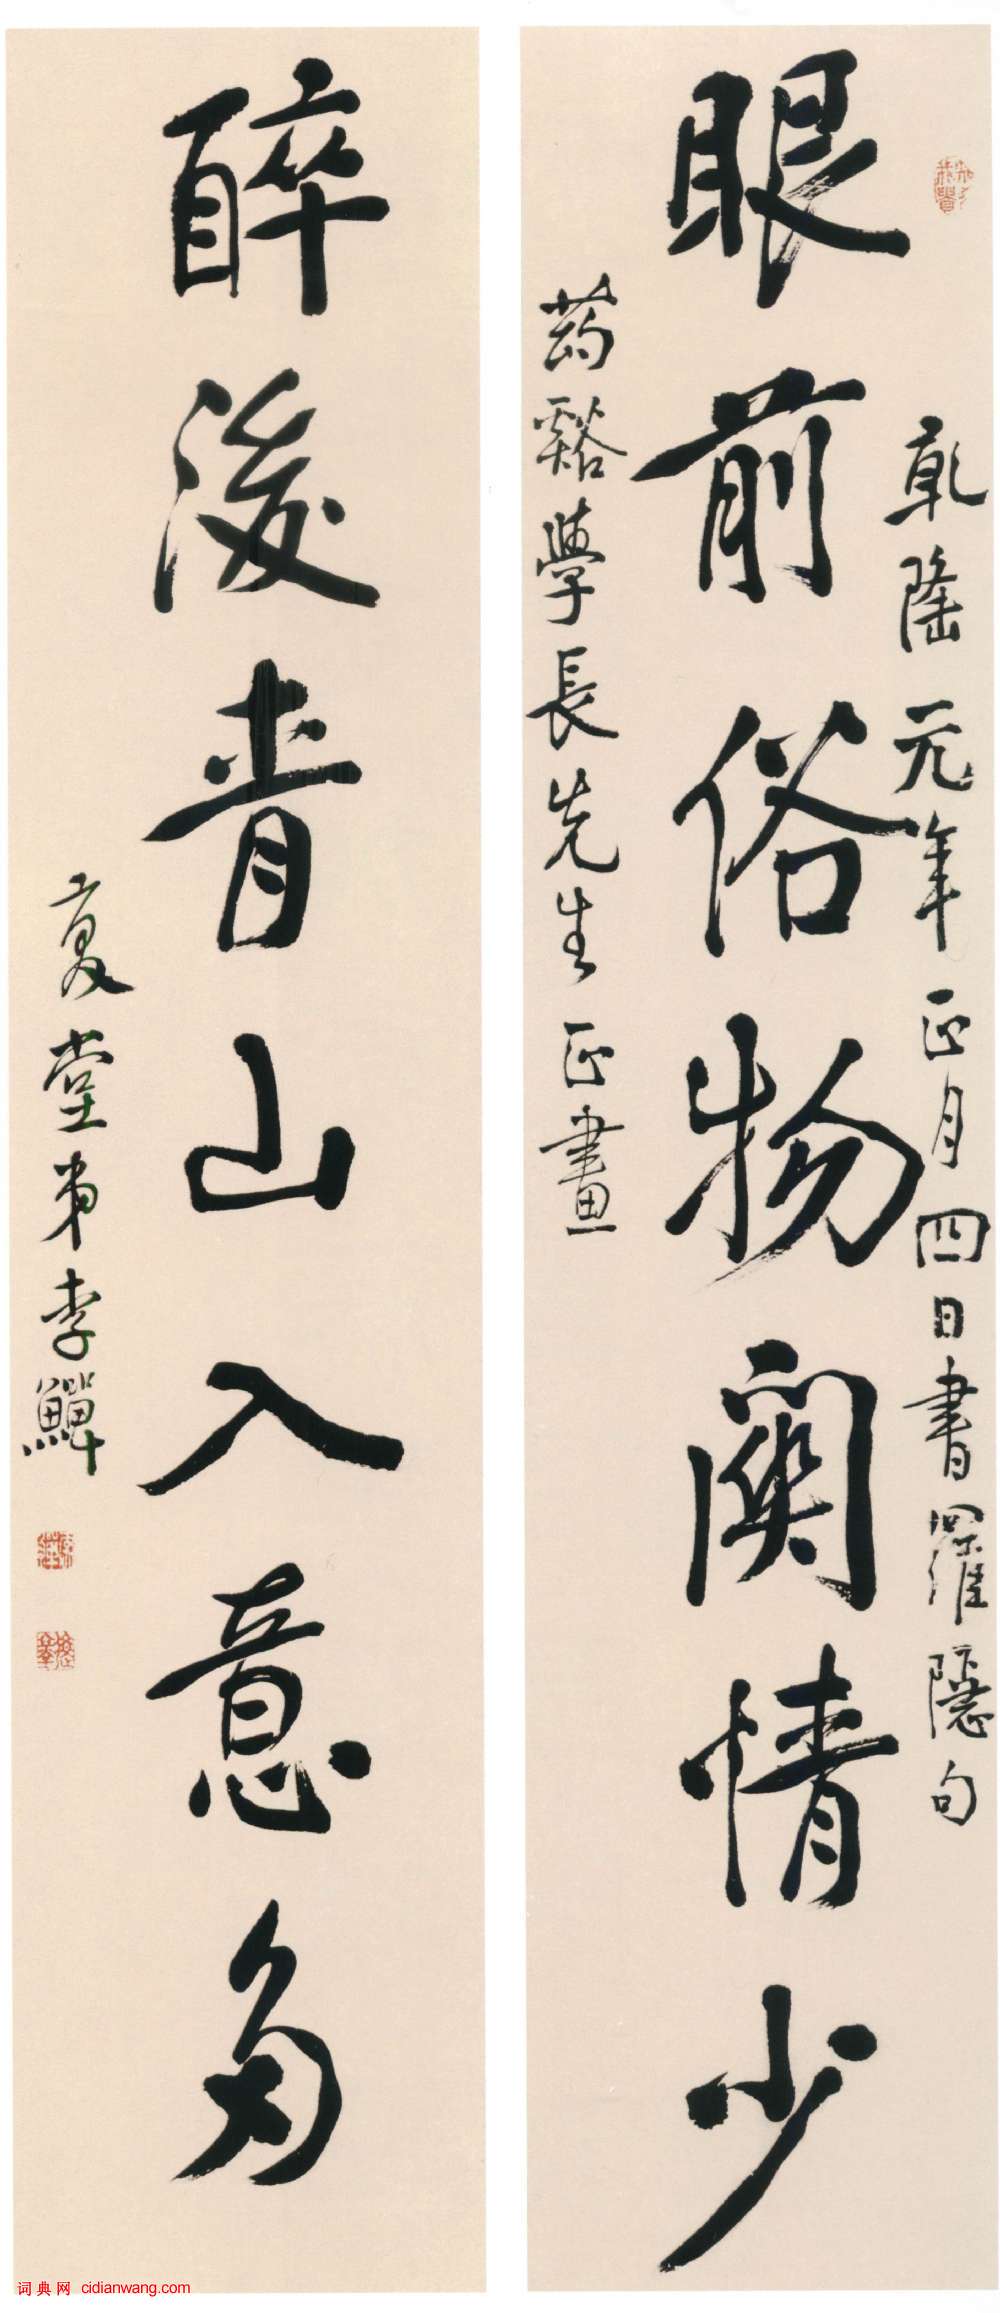 乾隆元年正月四日書羅隱句
眼前俗物關情少
药谿學長先生正畫
醉後青山入意多
復堂弟李鱓
词典网 cidianwang.com